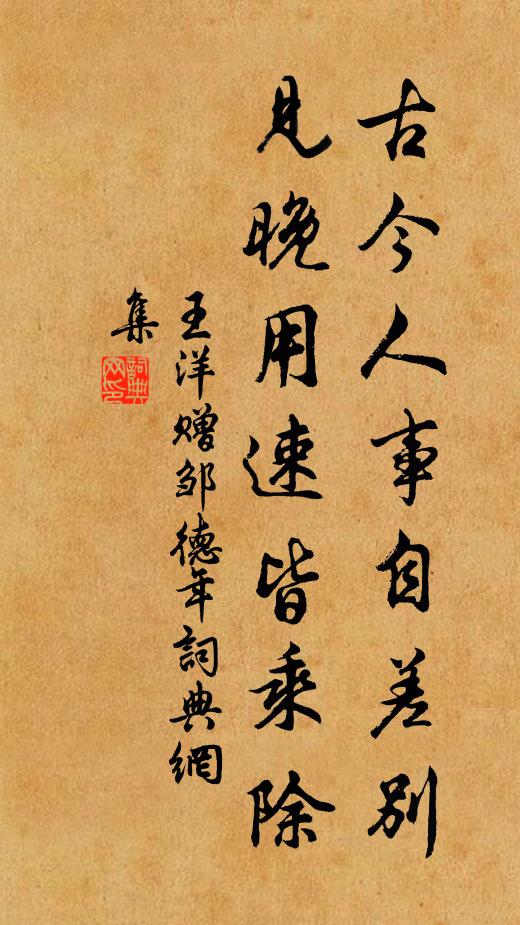 古今人事自差别
見晚用速皆乘除
王洋赠邹德年詞典網
集
詞典
网印